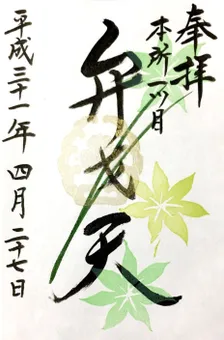 奉拝
本所一ツ目
弁才天
平成三十一年 四月 二十七日